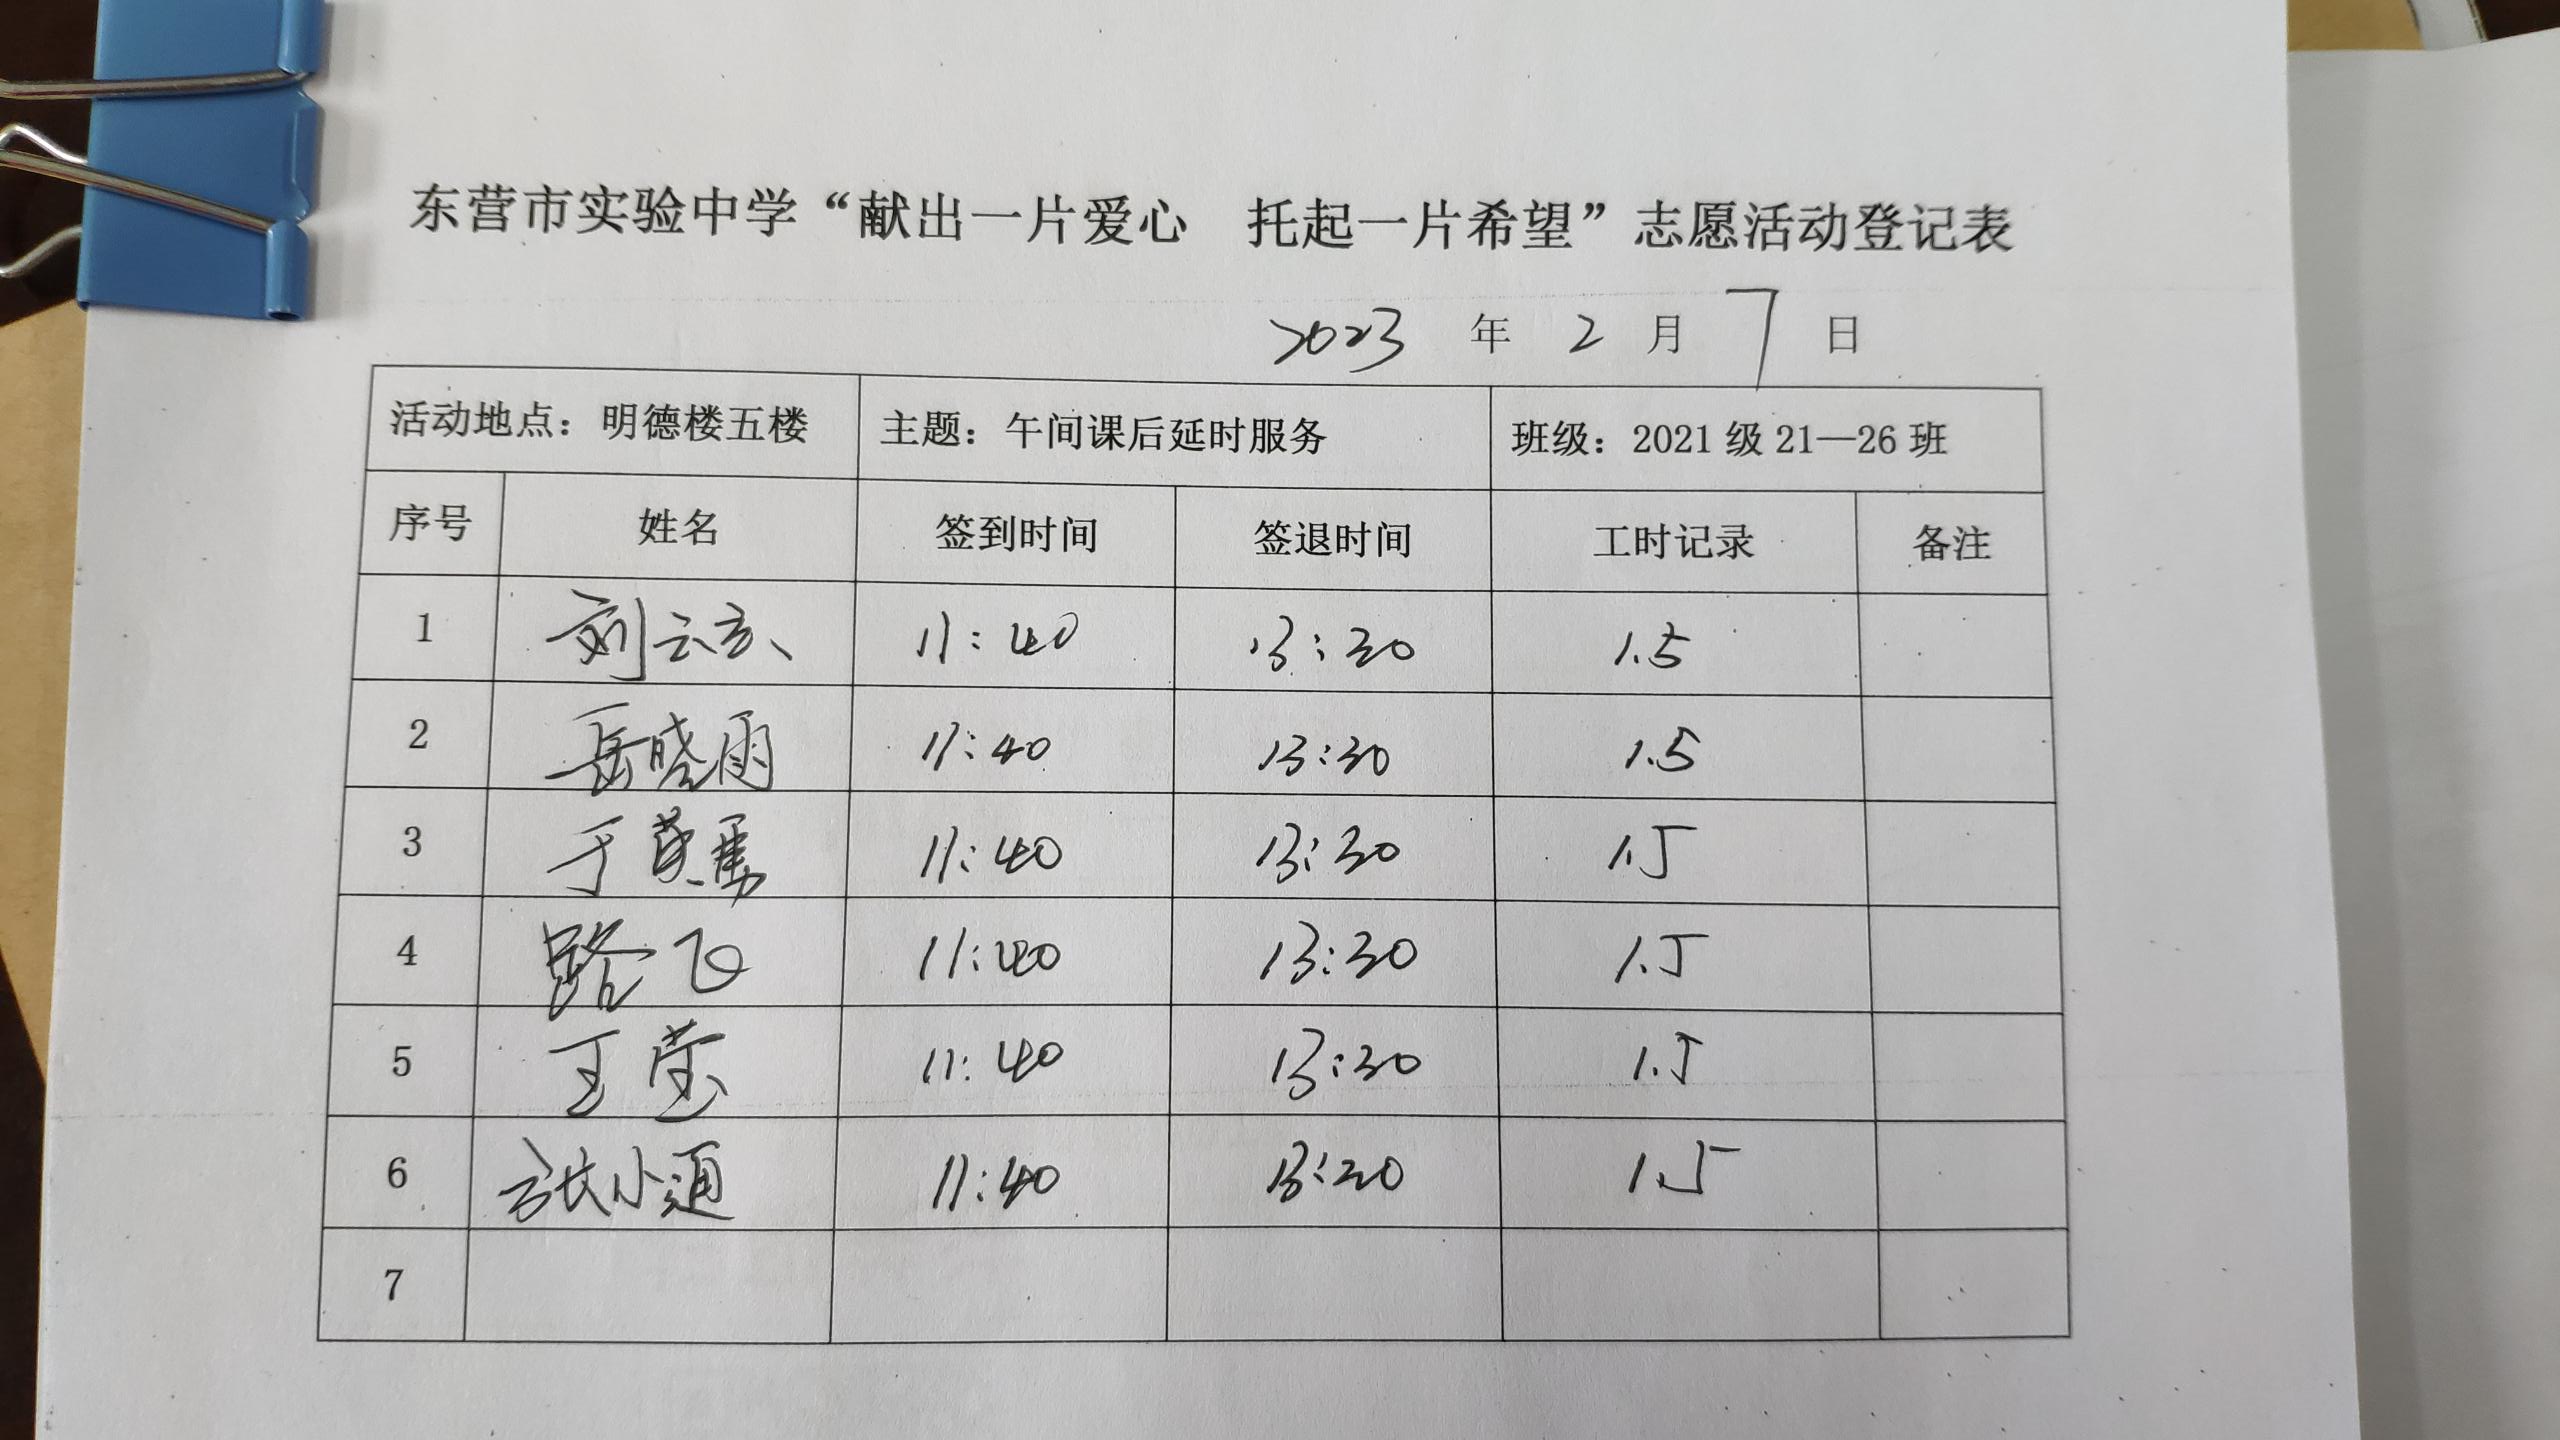 东营市实验中学“献出一片爱心 托起一片希望”志愿活动登记表
2023 年 2 月 7 日
活动地点：明德楼五楼 主题：午间课后延时服务 班级：2021 级 21—26 班
序号 姓名 签到时间 签退时间 工时记录 备注
1 刘云 11:40 13:30 1.5
2 岳晓雨 11:40 13:30 1.5
3 于 11:40 13:30 1.5
4 路飞 11:40 13:30 1.5
5 王莹 11:40 13:30 1.5
6 张小通 11:40 13:30 1.5
7